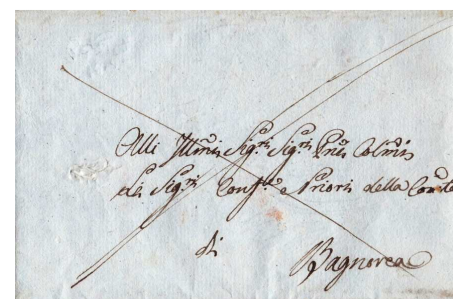 Alli Ill̃mi Sig.ri Sig.ri P̃ñi Col̃mi
Li Sig.ri Conf.re e Priori della Com̃te
di
Bagnorea